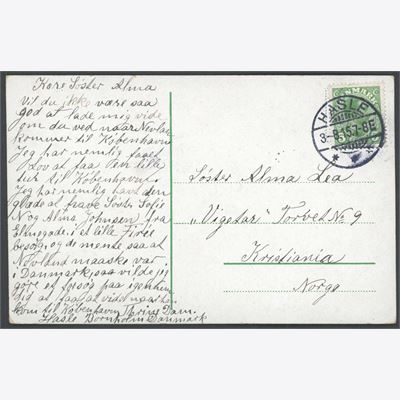 Kære Søster Alma
vil du ikke være saa
god at lade mig vide
om du ved naar
kommer til København
Jeg har nemlig faaet
Lov at faa en lille
tur til København.
Jeg har nemlig havt den
Glæde at have Søstr. Sofie
N og Alma Johnsen fra
i et lille
besøg, og de mente saa at
maaske var
i Danmark, saa vilde jeg
gøre et forsøg paa igennem
dig at faa at vide naar han
kom til København
Hasle Bornholm Danmark
DANMARK
HASLE
3-8.15.7-8E
Søster Alma Lea
„Vigetar" Torvet No 9
Kristiania
Norge